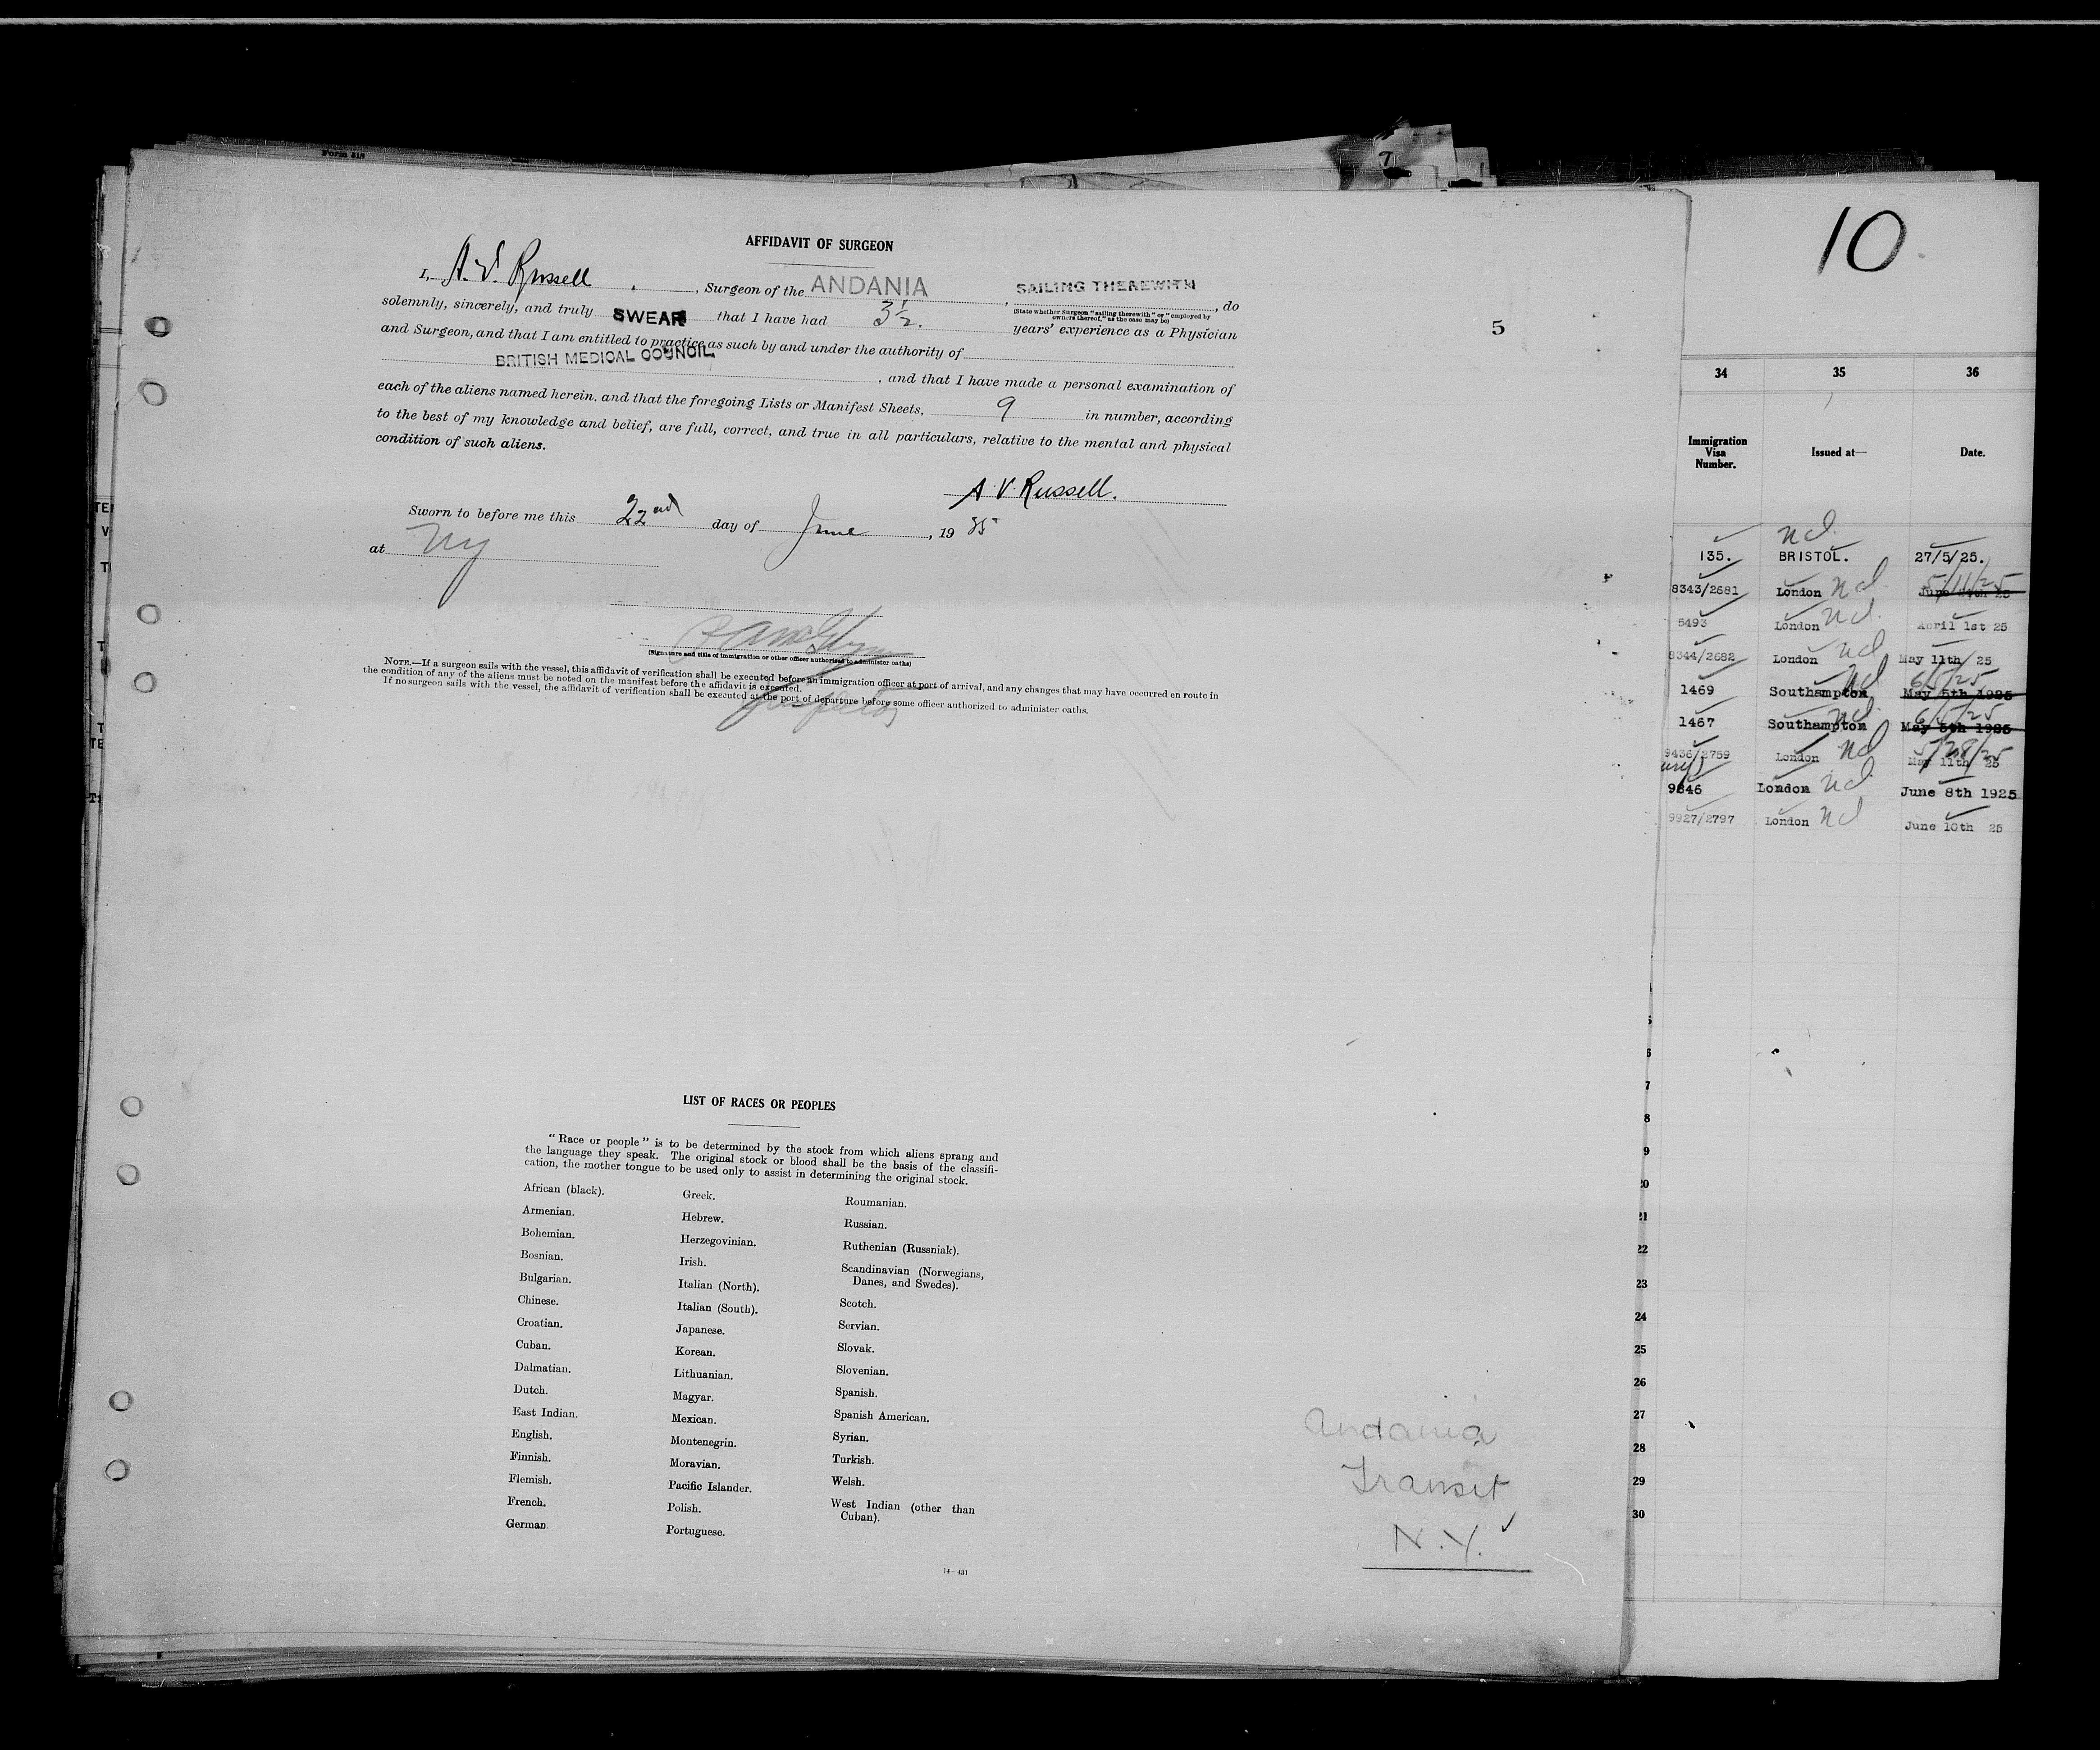 Form 518
7
10
AFFIDAVIT OF SURGEON
I, A. V. Russell, Surgeon of the ANDANIA, SAILING THEREWITH, do
(State whether Surgeon "sailing therewith" or "employed by owners thereof," as the case may be)
solemnly, sincerely, and truly SWEAR that I have had 3½ years' experience as a Physician
and Surgeon, and that I am entitled to practice as such by and under the authority of
BRITISH MEDICAL COUNCIL, and that I have made a personal examination of
each of the aliens named herein, and that the foregoing Lists or Manifest Sheets, 9 in number, according
to the best of my knowledge and belief, are full, correct, and true in all particulars, relative to the mental and physical
condition of such aliens.
A. V. Russell.
Sworn to before me this 22nd day of June, 19
at NY
(Signature and title of immigration or other officer authorized to administer oaths)
NOTE.—If a surgeon sails with the vessel, this affidavit of verification shall be executed before an immigration officer at port of arrival, and any changes that may have occurred en route in
the condition of any of the aliens must be noted on the manifest before the affidavit is executed.
If no surgeon sails with the vessel, the affidavit of verification shall be executed at the port of departure before some officer authorized to administer oaths.
5
LIST OF RACES OR PEOPLES
"Race or people" is to be determined by the stock from which aliens sprang and
the language they speak. The original stock or blood shall be the basis of the classifi-
cation, the mother tongue to be used only to assist in determining the original stock.
African (black).
Armenian.
Bohemian.
Bosnian.
Bulgarian.
Chinese.
Croatian.
Cuban.
Dalmatian.
Dutch.
East Indian.
English.
Finnish.
Flemish.
French.
German.
Greek.
Hebrew.
Herzegovinian.
Irish.
Italian (North).
Italian (South).
Japanese.
Korean.
Lithuanian.
Magyar.
Mexican.
Montenegrin.
Moravian.
Pacific Islander.
Polish.
Portuguese.
Roumanian.
Russian.
Ruthenian (Russniak).
Scandinavian (Norwegians,
Danes, and Swedes).
Scotch.
Servian.
Slovak.
Slovenian.
Spanish.
Spanish American.
Syrian.
Turkish.
Welsh.
West Indian (other than
Cuban).
14—431
Andania
Transit
N.Y.
34 35 36
Immigration Visa Number. Issued at— Date.
nd
135. BRISTOL. 27/5/25.
8343/2681 London nd 5/11/25 June
5493 London nd April 1st 25
8344/2682 London nd May 11th 25
1469 Southampton nd 6/5/25 May 5th 1925
1467 Southampton nd 6/5/25 May 5th 1925
9436/2759 London nd 5/28/25 May 11th 25
9846 London nd June 8th 1925
9927/2797 London nd June 10th 25
6
7
8
9
20
21
22
23
24
25
26
27
28
29
30